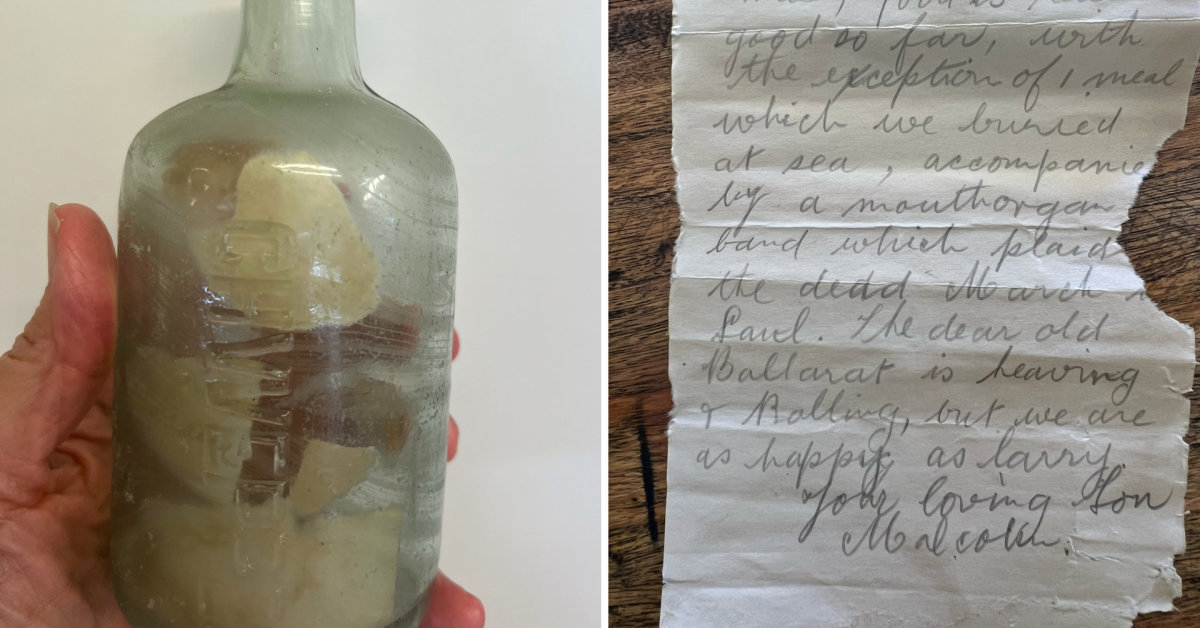 good so far, with
the exception of 1 meal
which we buried
at sea, accompanie
by a mouthorgan
band which plaid
the dedd March
Saul. The dear old
Ballarat is heaving
& Rolling, but we are
as happy as larry.
Your loving Son
Malcolm.